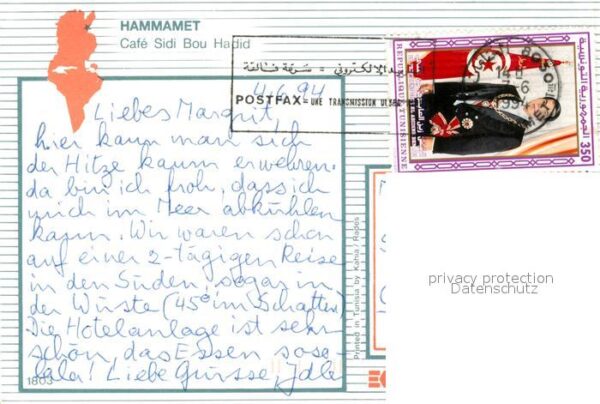 HAMMAMET
Café Sidi Bou Hadid
POSTFAX = UNE TRANSMISSION
البريد الإلكتروني = سرعة فائقة
REPUBLIQUE TUNISIENNE
الجمهورية التونسية
350
4.6.94
Liebes Margrit,
hier kann man sich
der Hitze kaum erwehren.
da bin ich froh, dass ich
mich im Meer abkühlen
kann. Wir waren schon
auf einer 2-tägigen Reise
in den Süden, sogar in
der Wüste (45° im Schatten)
Die Hotelanlage ist sehr
schön, das Essen so so-
lala! Liebe Grüsse,
1803
Printed in Tunisia by Kahia / Rades
privacy protection
Datenschutz